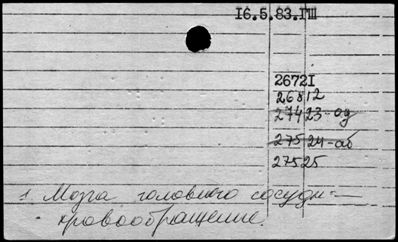 16.5.83.ГШ
26721
26812
27423-од
27524-аб
27525
1. Мозга головного сосуды —
кровообращение.